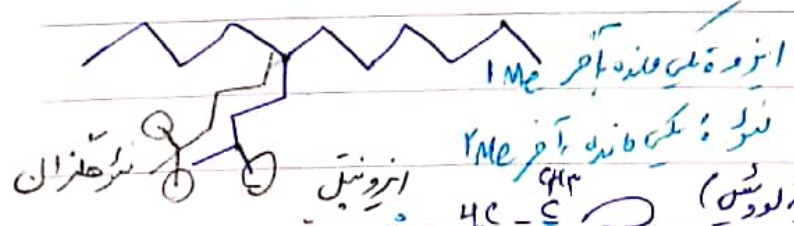 ایزو: یکی مانده بآخر 1Me
نئو: یکی مانده بآخر ۲Me
نئوهگزان
ایزونیتل
CH۳
HC - C